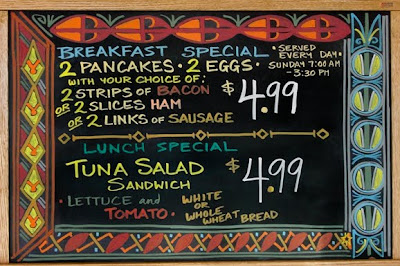 BREAKFAST SPECIAL • SERVED EVERY DAY •
2 PANCAKES • 2 EGGS • SUNDAY 7:00 AM - 3:30 PM
WITH YOUR CHOICE OF:
2 STRIPS OF BACON $4.99
OR 2 SLICES HAM
OR 2 LINKS OF SAUSAGE
LUNCH SPECIAL
TUNA SALAD $4.99
SANDWICH
• LETTUCE and TOMATO • WHITE OR WHOLE WHEAT BREAD